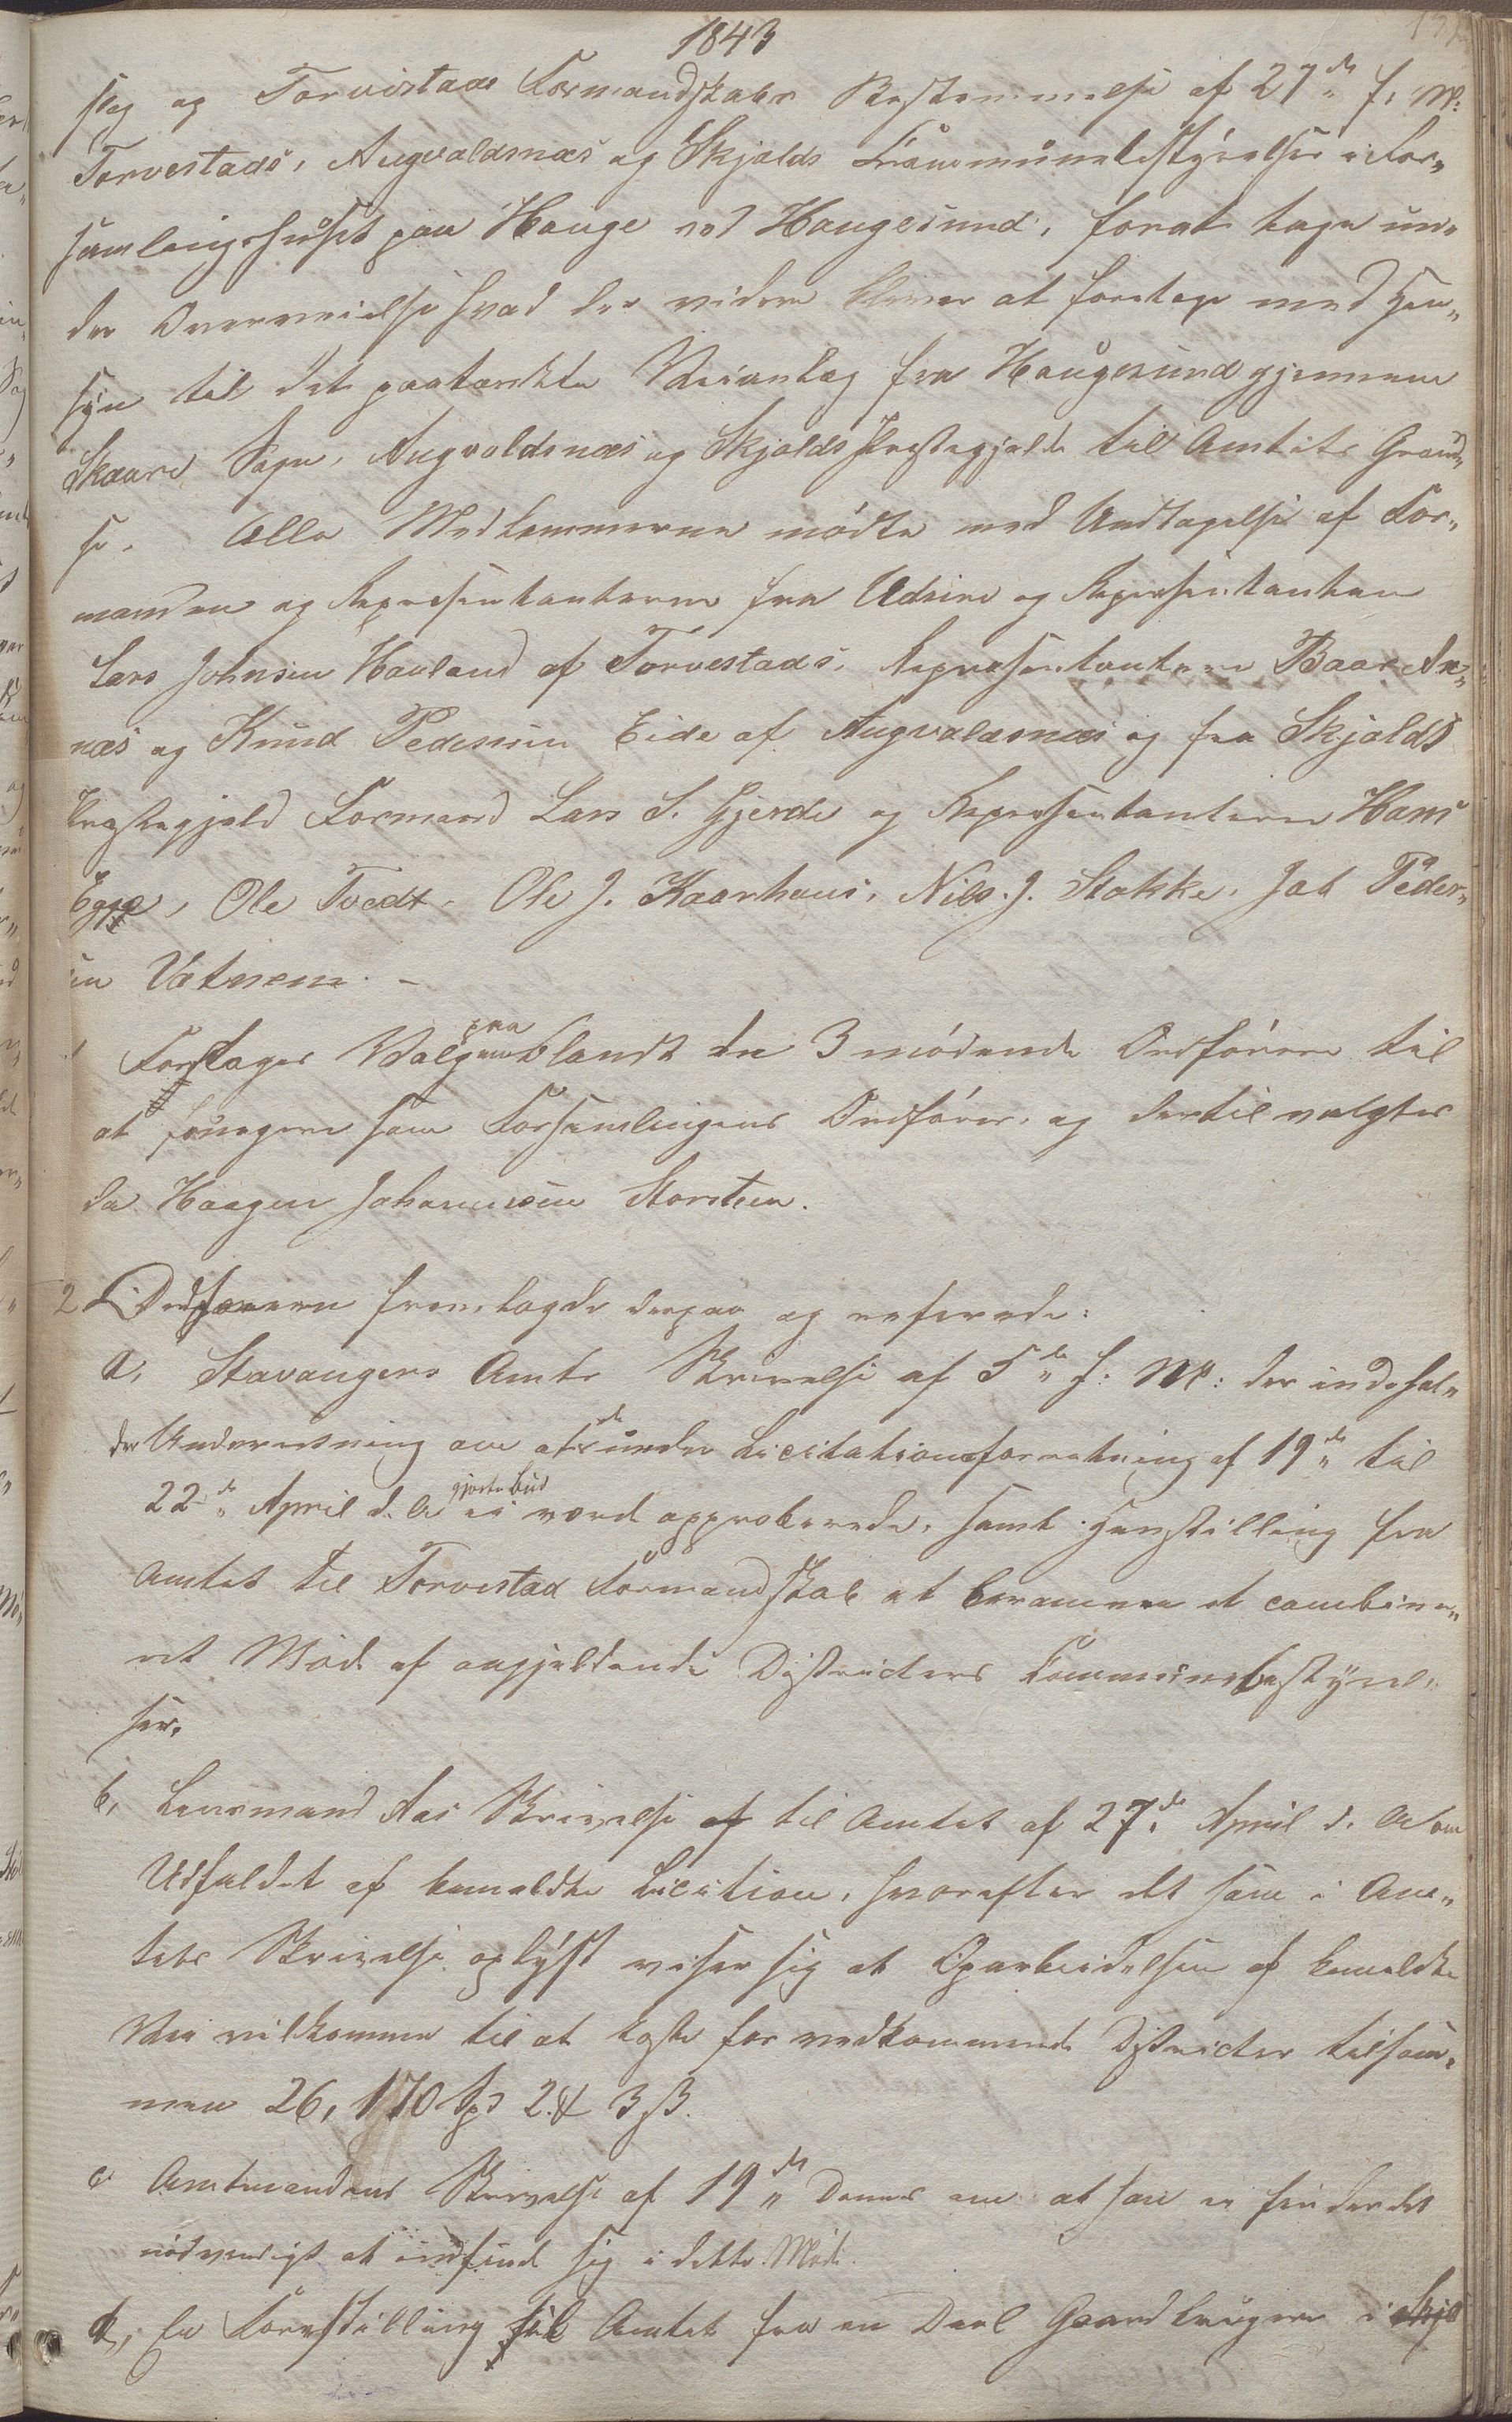 1843
slag og Torvestads Formandskabs Bestemmelse af 27de f. M:
Torvestads, Augvaldsnæs og Skjolds Communebestyrelser i For-
samlingshuset paa Hauge ved Haugesund, forat tage un-
der Overveielse hvad der videre bliver at foretage med Hen-
syn til det paatænkte Veianlæg fra Haugesund gjennem
Skaare Sogn, Augvaldsnæs og Skjolds Præstegjelde til Amtets Grænd-
se. Alle Medlemmerne mødte med Undtagelse af For-
manden og Repræsentanterne fra Udsire og Repræsentanten
Lars Johnsen Hauland af Torvestads, Repræsentanterne Baar An-
næs og Knud Pedersen Eide af Augvaldsnæs og fra Skjolds
Præstegjeld Formand Lars S. Gjerde og Repræsentanterne Hans
Egge, Ole Tvedt, Ole J. Kaarhuus, Nils J. Stakke, Job Peder-
sen Vatnem. –
Foretages Valg paa blandt de 3 mødende Ordførere til
at fungere som Forsamlingens Ordfører, og dertil valgtes
da Haagen Johannesen Storsteen.
2 Ordføreren fremlagde derpaa og refererede:
a, Stavangers Amts Skrivelse af 5de f: M: der indehol-
der Underretning om at de under Licitationsforretning af 19de til
22de April d. A. gjorte Bud ei vorde approberede, samt Henstilling fra
Amtet til Torvestad Formandskab at beramme et combine-
ret Møde af angjeldende Districters Communebestyrel-
ser.
b, Lensmand Aas Skrivelse af til Amtet af 27de April d. A. om
Udfaldet af bemeldte Licition, hvorefter det som i Am-
tets Skrivelse oplyst viser sig at Oparbeidelsen af bemeldte
Vei vilkomme til at koste for vedkommende Districter tilsam-
men 26,170 Spd 2 # 3 ß.
c Amtmandens Skrivelse af 19de Dennes om at han ei finder det
nødvendigt at indfinde sig i dette Møde.
d, En Forestilling til Amtet fra en Deel Gaardbrugere i Skjo